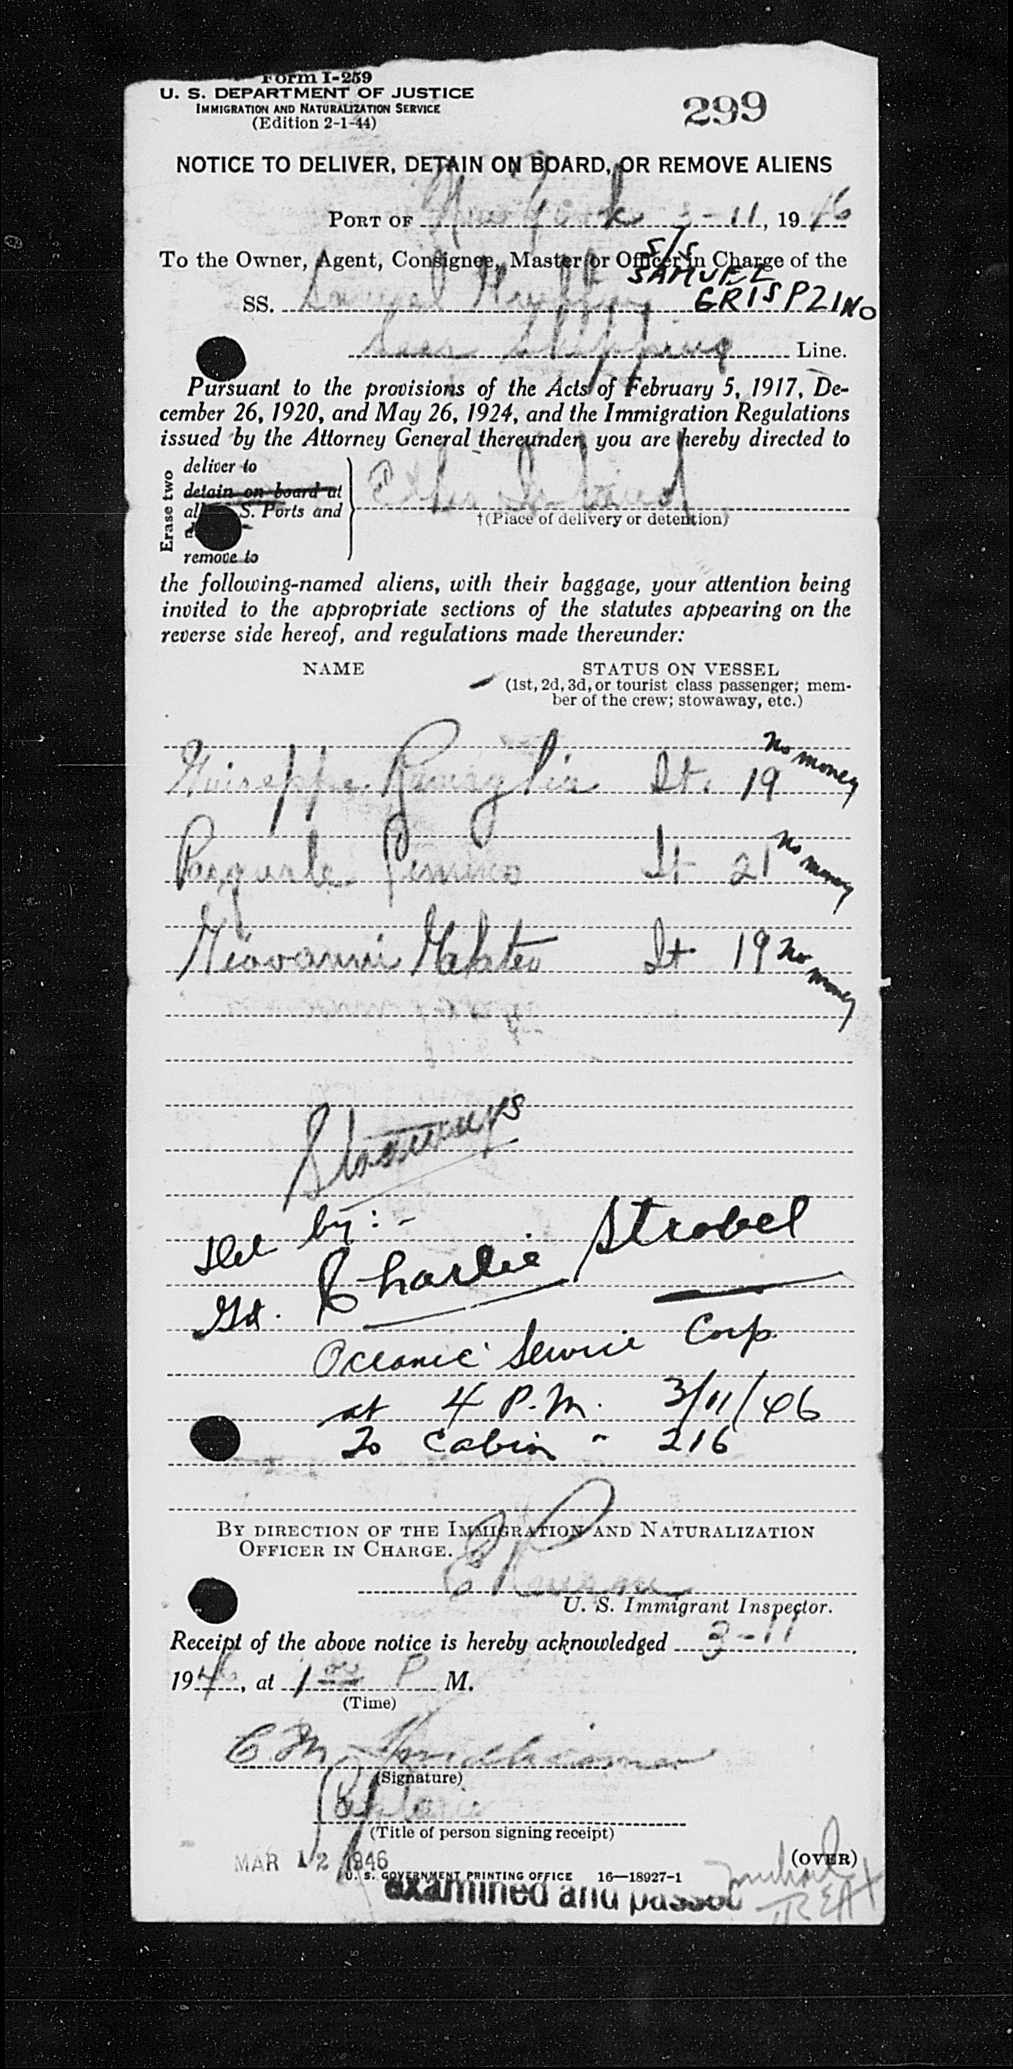 Form I-259
U. S. DEPARTMENT OF JUSTICE
IMMIGRATION AND NATURALIZATION SERVICE
(Edition 2-1-44)
299
NOTICE TO DELIVER, DETAIN ON BOARD, OR REMOVE ALIENS
PORT OF New York 3-11, 1946
To the Owner, Agent, Consignee, Master or Officer in Charge of the
S/S
SAMUEL
SS. Samuel GRISPZINO
Shipping Line.
Pursuant to the provisions of the Acts of February 5, 1917, De-
cember 26, 1920, and May 26, 1924, and the Immigration Regulations
issued by the Attorney General thereunder, you are hereby directed to
Erase two
deliver to
detain on board at
all S. Ports and
remove to
Ellis Island
†(Place of delivery or detention)
the following-named aliens, with their baggage, your attention being
invited to the appropriate sections of the statutes appearing on the
reverse side hereof, and regulations made thereunder:
NAME STATUS ON VESSEL
(1st, 2d, 3d, or tourist class passenger; mem-
ber of the crew; stowaway, etc.)
Guiseppe It. 19 no money
Pasquale It 21 no money
Giovanni It 19 no money
Stowaways
Del by:-
Gd. Charlie Strobel
Oceanic Service Corp
at 4 P.M. 3/11/46
To Cabin - 216
BY DIRECTION OF THE IMMIGRATION AND NATURALIZATION
OFFICER IN CHARGE.
U. S. Immigrant Inspector.
Receipt of the above notice is hereby acknowledged 3-11,
1946, at 1 00 P M.
(Time)
C M
(Signature)
(Title of person signing receipt)
MAR 12 1946
(OVER)
U. S. GOVERNMENT PRINTING OFFICE 16—18927-1
examined and passed